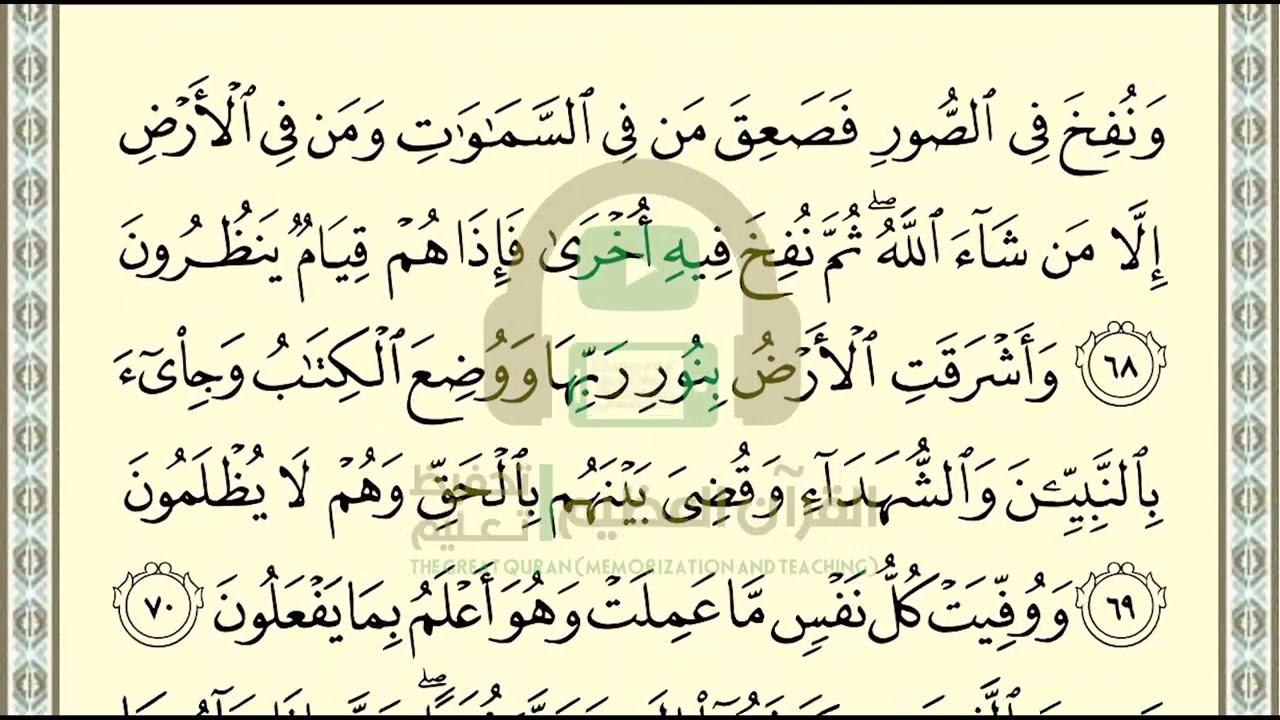 وَنُفِخَ فِى ٱلصُّورِ فَصَعِقَ مَن فِى ٱلسَّمَٰوَٰتِ وَمَن فِى ٱلْأَرْضِ
إِلَّا مَن شَآءَ ٱللَّهُ ۖ ثُمَّ نُفِخَ فِيهِ أُخْرَىٰ فَإِذَا هُمْ قِيَامٌ يَنظُرُونَ
٦٨ وَأَشْرَقَتِ ٱلْأَرْضُ بِنُورِ رَبِّهَا وَوُضِعَ ٱلْكِتَٰبُ وَجِا۟ىٓءَ
بِٱلنَّبِيِّـۧنَ وَٱلشُّهَدَآءِ وَقُضِىَ بَيْنَهُم بِٱلْحَقِّ وَهُمْ لَا يُظْلَمُونَ
تحفيظ
تعليم
القرآن العظيم
THE GREAT QURAN (MEMORIZATION AND TEACHING)
٦٩ وَوُفِّيَتْ كُلُّ نَفْسٍ مَّا عَمِلَتْ وَهُوَ أَعْلَمُ بِمَا يَفْعَلُونَ ٧٠